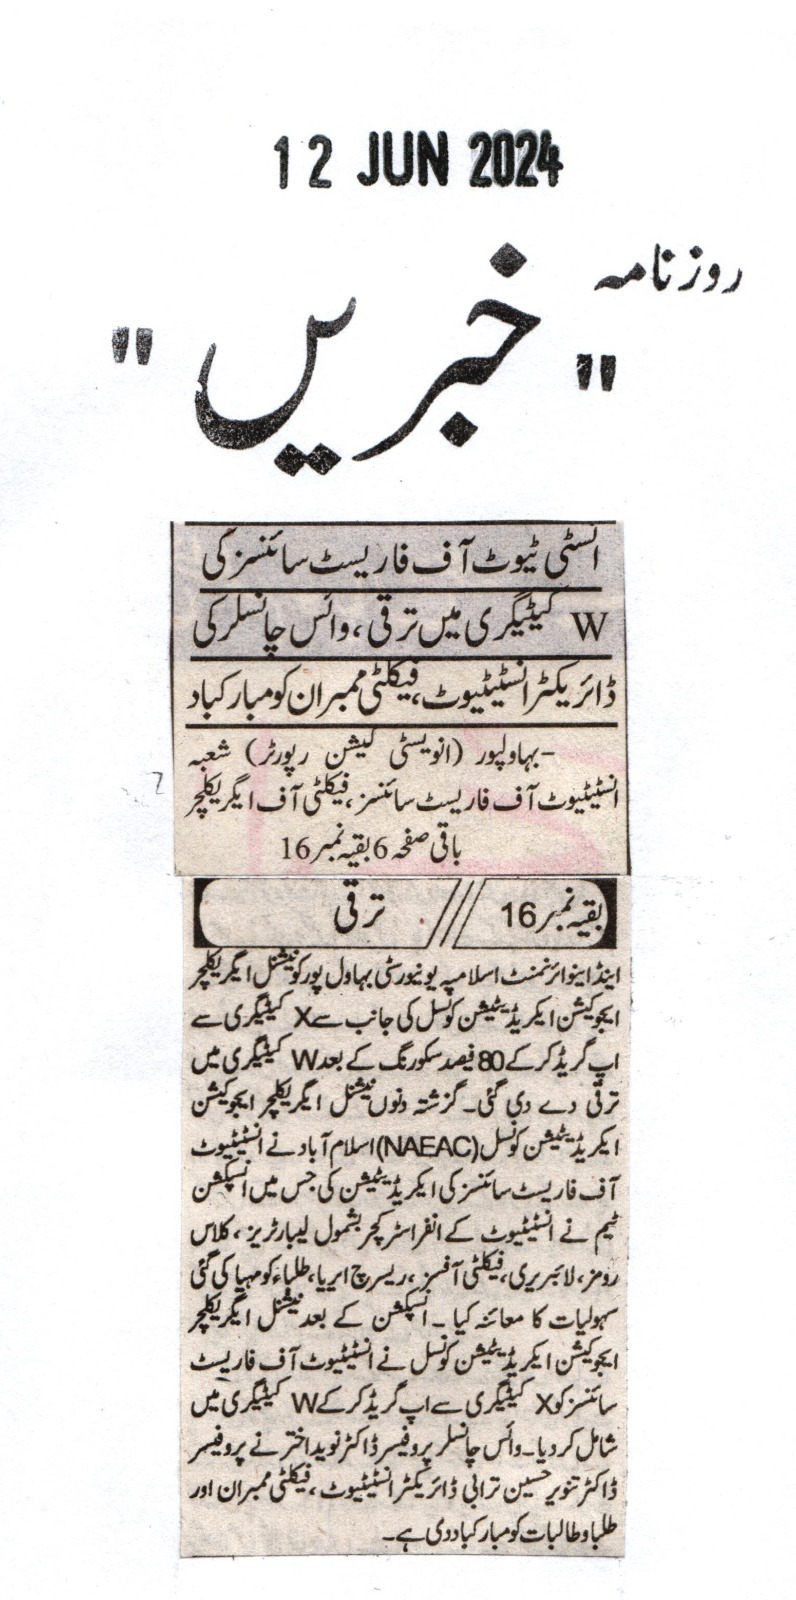 12 JUN 2024
روزنامہ
"خبریں"
انسٹی ٹیوٹ آف فاریسٹ سائنسز کی
W کیٹیگری میں ترقی، وائس چانسلر کی
ڈائریکٹر انسٹیٹیوٹ، فیکلٹی ممبران کو مبارکباد
-بہاولپور (انویسٹی گیشن رپورٹر) شعبہ
انسٹیٹیوٹ آف فاریسٹ سائنسز، فیکلٹی آف ایگریکلچر
باقی صفحہ 6 بقیہ نمبر 16
بقیہ نمبر 16 /// ترقی
اینڈ اینوائرنمنٹ اسلامیہ یونیورسٹی بہاول پور کو نیشنل ایگریکلچر
ایجوکیشن ایکریڈیٹیشن کونسل کی جانب سے X کیٹیگری سے
اپ گریڈ کر کے 80 فیصد سکورنگ کے بعد W کیٹیگری میں
ترقی دے دی گئی۔ گزشتہ دنوں نیشنل ایگریکلچر ایجوکیشن
ایکریڈیٹیشن کونسل (NAEAC) اسلام آباد نے انسٹیٹیوٹ
آف فاریسٹ سائنسز کی ایکریڈیٹیشن کی جس میں انسپکشن
ٹیم نے انسٹیٹیوٹ کے انفراسٹرکچر بشمول لیبارٹریز، کلاس
رومز، لائبریری، فیکلٹی آفسز، ریسرچ ایریا، طلباء کو مہیا کی گئی
سہولیات کا معائنہ کیا۔ انسپکشن کے بعد نیشنل ایگریکلچر
ایجوکیشن ایکریڈیٹیشن کونسل نے انسٹیٹیوٹ آف فاریسٹ
سائنسز کو X کیٹیگری سے اپ گریڈ کر کے W کیٹیگری میں
شامل کر دیا۔ وائس چانسلر پروفیسر ڈاکٹر نوید اختر نے پروفیسر
ڈاکٹر تنویر حسین ترابی ڈائریکٹر انسٹیٹیوٹ، فیکلٹی ممبران اور
طلبا و طالبات کو مبارکباد دی ہے۔